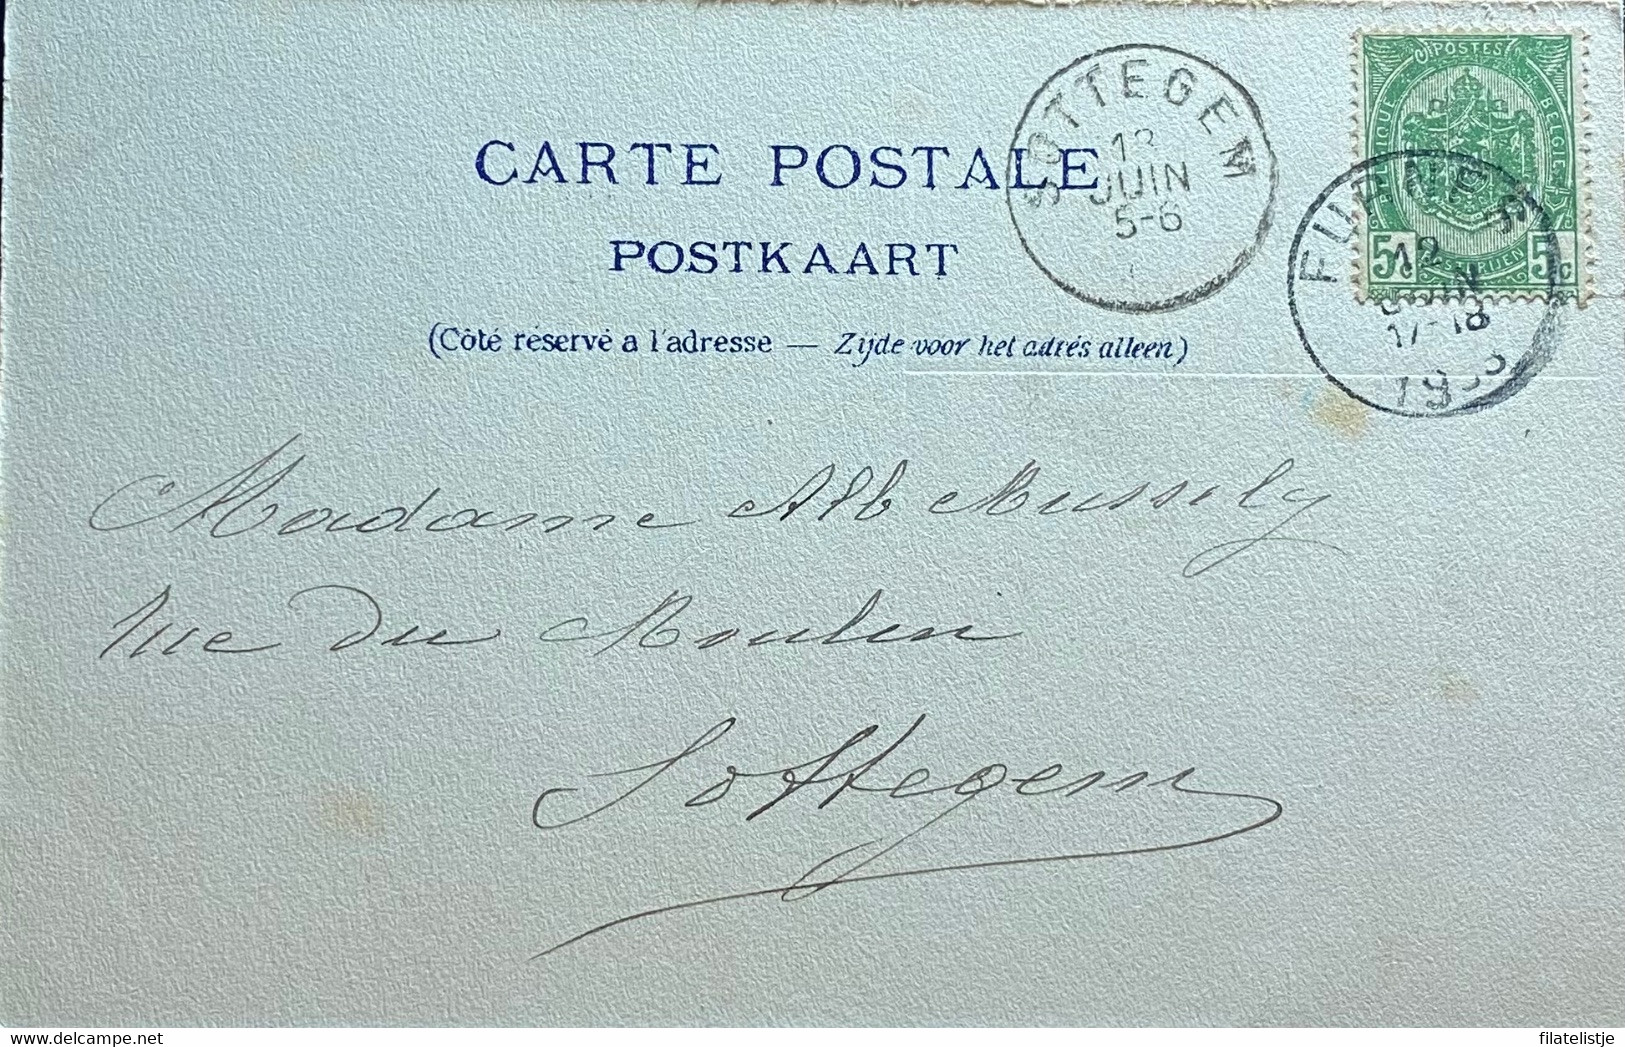 CARTE POSTALE
POSTKAART
(Côté réservé a l'adresse — Zijde voor het adrés alleen)
SOTTEGEM
JUIN
5-6
POSTES
BELGIË
5c 5c
FURNES
12
JUIN
17-18
Madame Alb Mussely
rue du Moulin
Sottegem
filatelistje